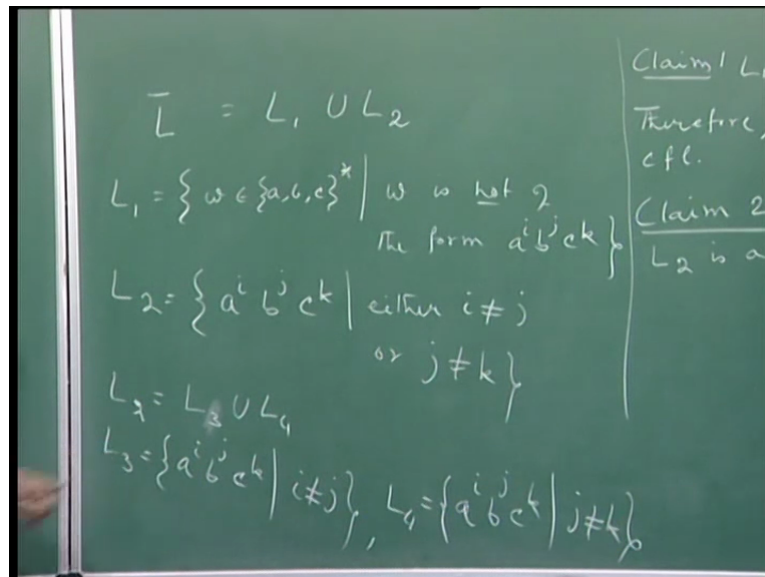 L̄ = L₁ ∪ L₂
L₁ = { w ∈ {a, b, c}* | w is not of
the form aⁱ bʲ cᵏ }
L₂ = { aⁱ bʲ cᵏ | either i ≠ j
or j ≠ k }
L₂ = L₃ ∪ L₄
L₃ = { aⁱ bʲ cᵏ | i ≠ j }, L₄ = { aⁱ bʲ cᵏ | j ≠ k }
Claim 1 L₁
Therefore,
cfl.
Claim 2
L₂ is a